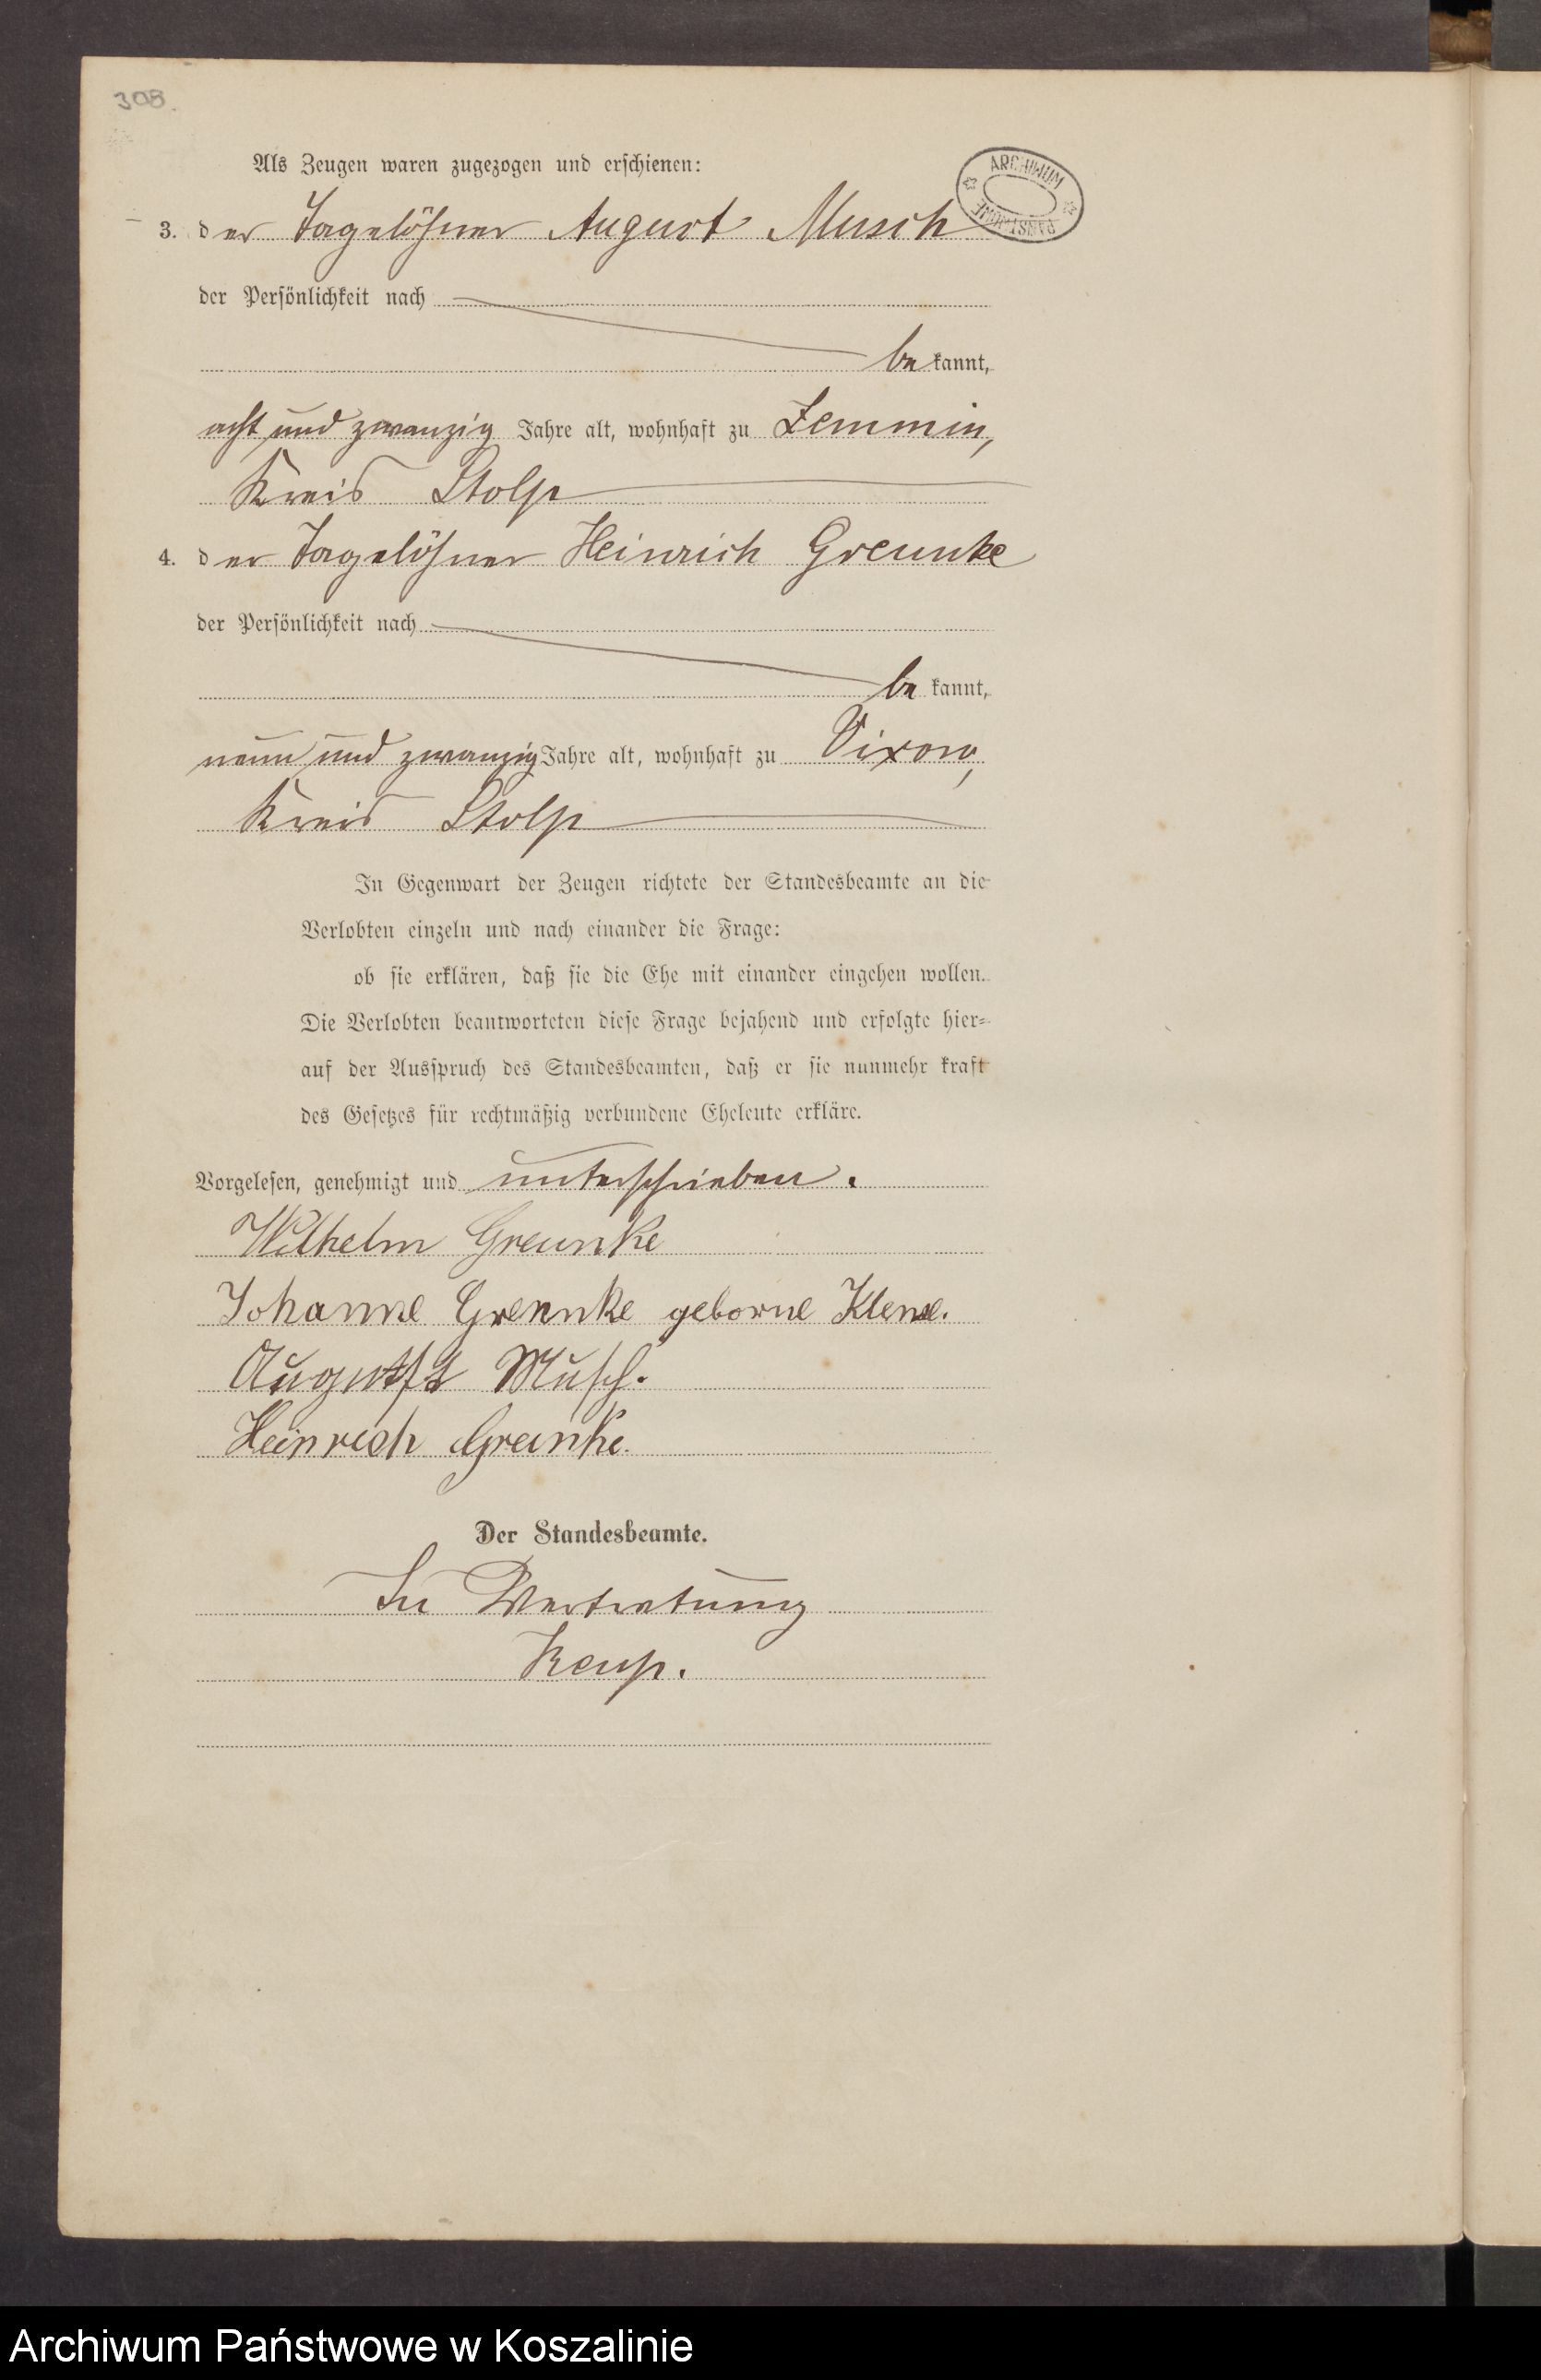 308.
Als Zeugen waren zugezogen und erschienen:
ARCHIWUM
PAŃSTWOWE
3. der Tagelöhner August Musch
der Persönlichkeit nach
bekannt,
acht und zwanzig Jahre alt, wohnhaft zu Zemmin,
Kreis Stolp
4. der Tagelöhner Heinrich Greunke
der Persönlichkeit nach
be kannt,
neun und zwanzig Jahre alt, wohnhaft zu Vixow,
Kreis Stolp
In Gegenwart der Zeugen richtete der Standesbeamte an die
Verlobten einzeln und nach einander die Frage:
ob sie erklären, daß sie die Ehe mit einander eingehen wollen.
Die Verlobten beantworteten diese Frage bejahend und erfolgte hier=
auf der Ausspruch des Standesbeamten, daß er sie nunmehr kraft
des Gesetzes für rechtmäßig verbundene Eheleute erkläre.
Vorgelesen, genehmigt und unterschrieben.
Wilhelm Greunke
Johanne Greunke geborne
August Musch.
Heinrich Greunke.
Der Standesbeamte.
In Vertretung
Archiwum Państwowe w Koszalinie